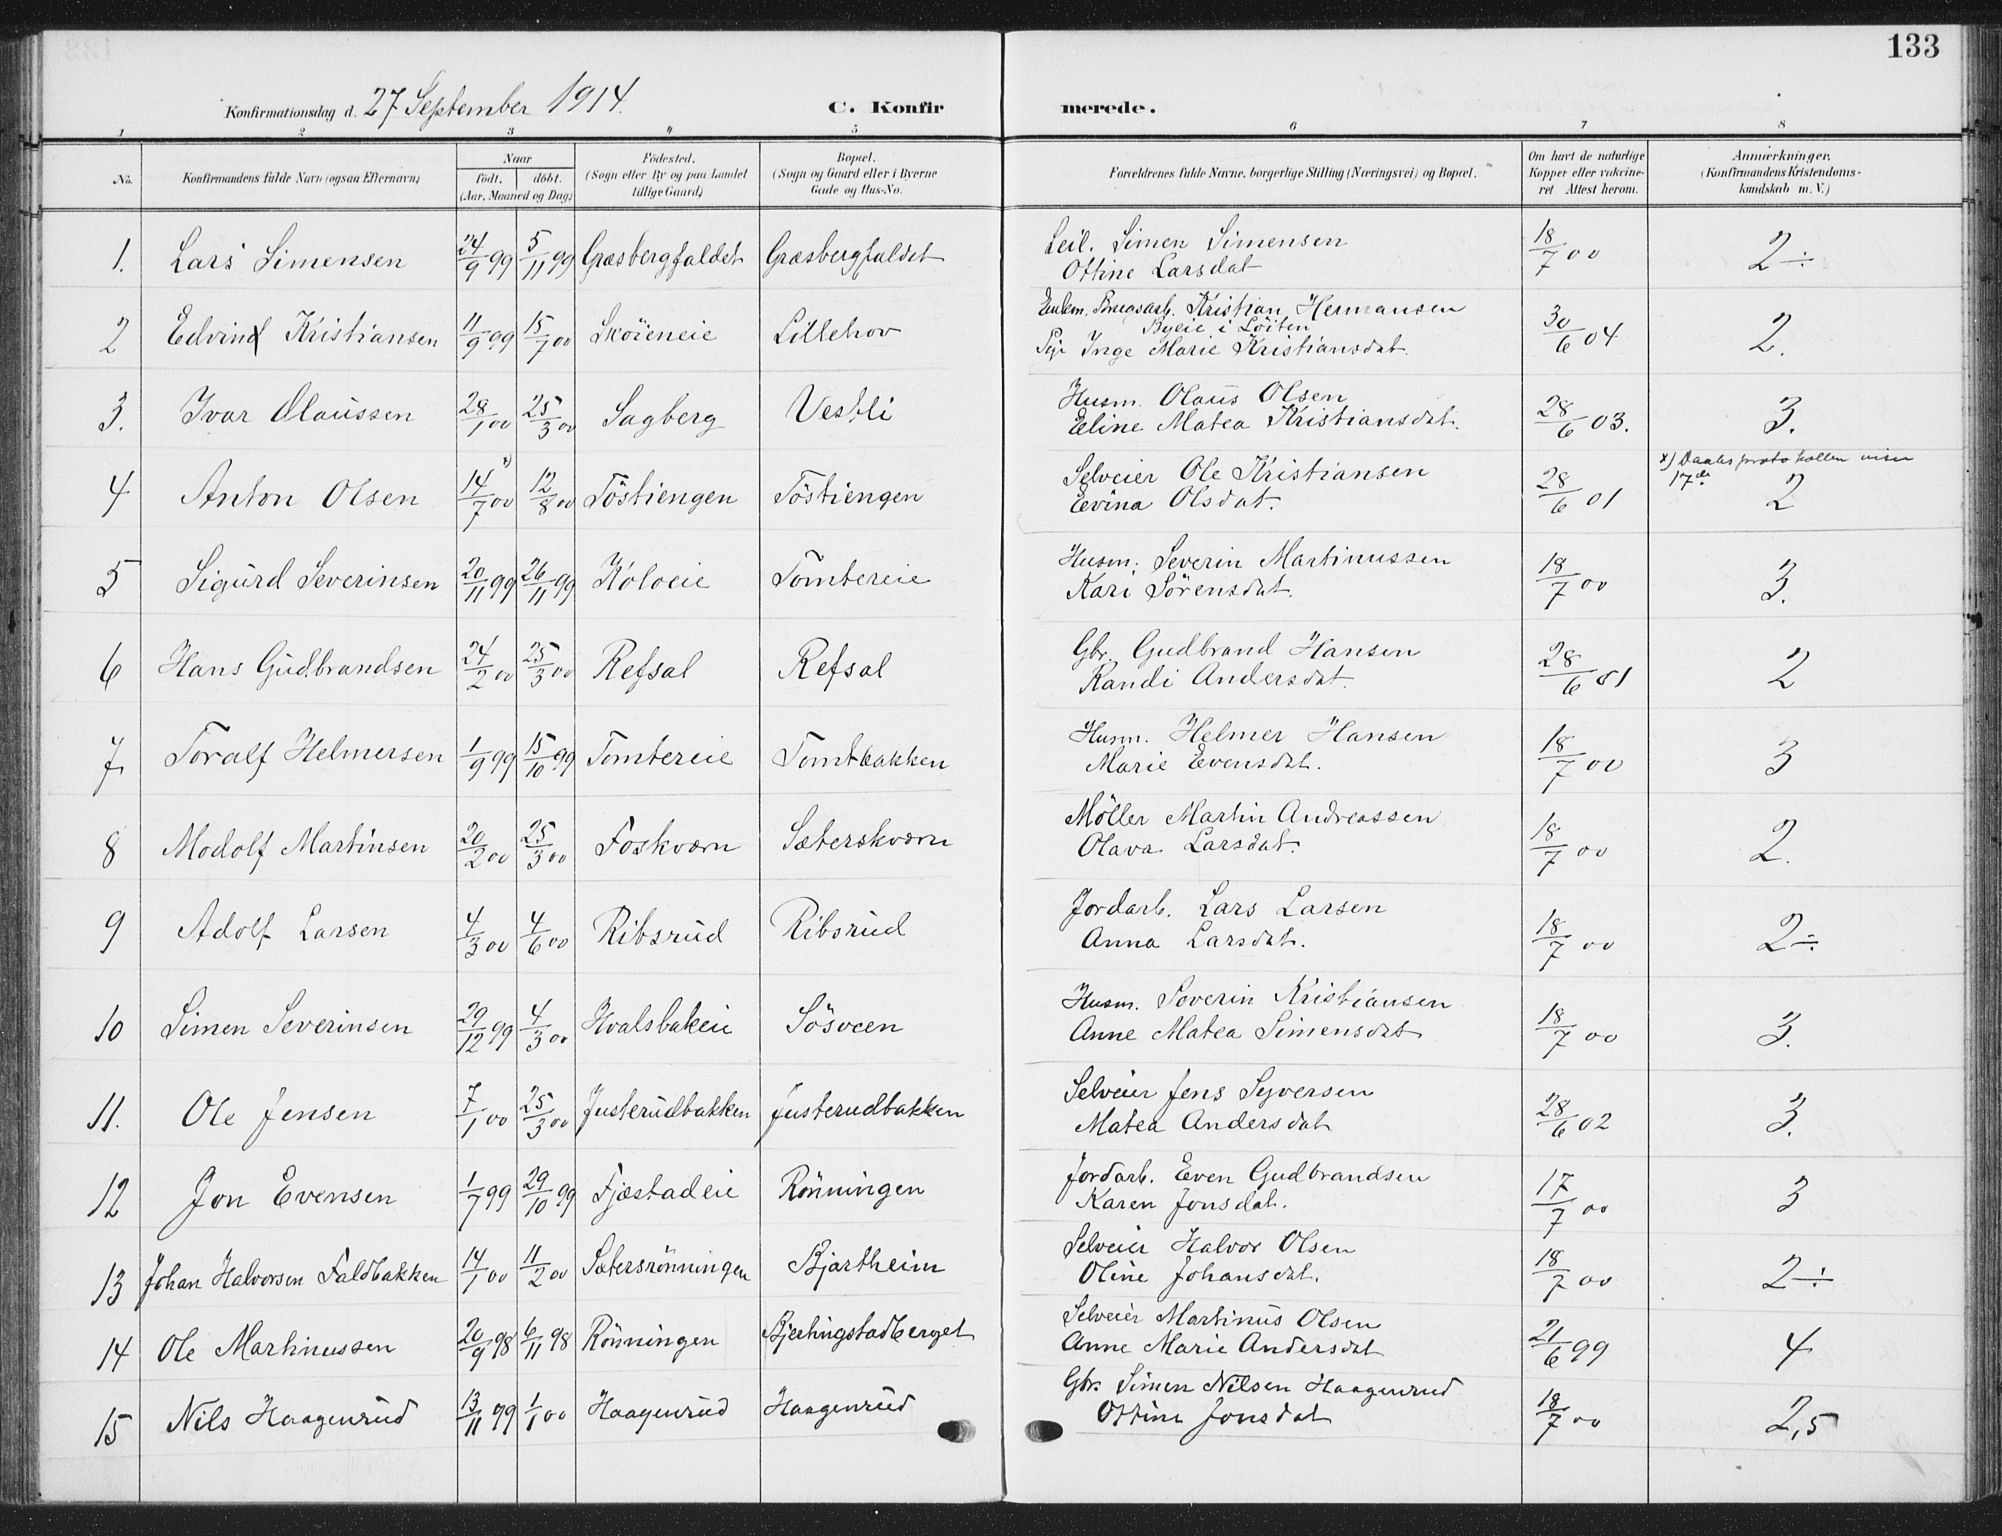 133
Konfirmationsdag d. 27 September 1914. C. Konfir merede.
1 2 3 4 5 6 7 8
No. Konfirmandens fulde Navn (ogsaa Efternavn) Naar födt. döbt. (Aar, Maaned og Dag) Födested. (Sogn eller By og paa Landet tillige Gaard) Bopæl. (Sogn og Gaard eller i Byerne Gade og Hus-No. Forældrenes fulde Navne, borgerlige Stilling (Næringsvei) og Bopæl. Om havt de naturlige Kopper eller vakcineret Attest herom. Anmærkninger. (Konfirmandens Kristendomskundskab m. V.)
1. Lars Simensen 24/9 99 5/11 99 Græsbergfaldet Græsbergfaldet Leil. Simen Simensen 18/7 00 2÷
Ottine Larsdat
2 Edvind Kristiansen 11/9 99 15/7 00 Sköieneie Lillehov Enkem. Brugsarb. Kristian Hermansen 30/6 04 2.
Byeie i Löiten
Pige Inge Marie Kristiansdat.
3. Ivar Olaussen 28/1 00 25/3 00 Sagberg Vestli Husm. Olaus Olsen 28/6 03. 3.
Eline Matea Kristiansdat.
4 Anton Olsen 14/7 00 x) 12/8 00 Töstiengen Töstiengen Selveier Ole Kristiansen 28/6 01 x) Daabsprotokollen viser 17de 2
Evina Olsdat.
5 Sigurd Severinsen 20/11 99 26/11 99 Koloeie Tomtereie Husm. Severin Martinussen 18/7 00 3.
Kari Sörensdat.
6 Hans Gudbrandsen 24/2 00 25/3 00 Refsal Refsal Gbr. Gudbrand Hansen 28/6 01 2
Randi Andersdat.
7 Toralf Helmersen 1/9 99 15/10 99 Tomtereie Tomtbakken Husm. Helmer Hansen 18/7 00 3
Marie Evensdat.
8 Modolf Martinsen 20/2 00 25/3 00 Foskværn Sæterskværn Möller Martin Andreassen 18/7 00 2.
Olava Larsdat.
9 Adolf Larsen 4/3 00 4/6 00 Ribsrud Ribsrud Jordarb. Lars Larsen 18/7 00 2÷
Anna Larsdat.
10 Simen Severinsen 29/12 99 4/3 00 Hvalsbakeie Sösveen Husm. Severin Kristiansen 18/7 00 3.
Anne Matea Simensdat
11. Ole Jensen 7/1 00 25/3 00 Justerudbakken Justerudbakken Selveier Jens Syversen 28/6 02 3.
Matea Andersdat
12 Jon Evensen 1/7 99 29/10 99 Fjæstadeie Rönningen Jordarb. Even Gudbrandsen 17/7 00 3
Karen Jonsdat.
13 Johan Halvorsen Faldbakken 14/1 00 11/2 00 Sætersrönningen Bjartheim Selveier Halvor Olsen 18/7 00 2÷
Oline Johansdat.
14 Ole Martinussen 20/9 98 6/11 98 Rönningen Bjerkingstadberget Selveier Martinus Olsen 21/6 99 4
Anne Marie Andersdat
15 Nils Haagenrud 13/11 99 1/1 00 Haagenrud Haagenrud Gbr. Simen Nilsen Haagenrud 18/7 00 2,5
Ottine Jonsdat